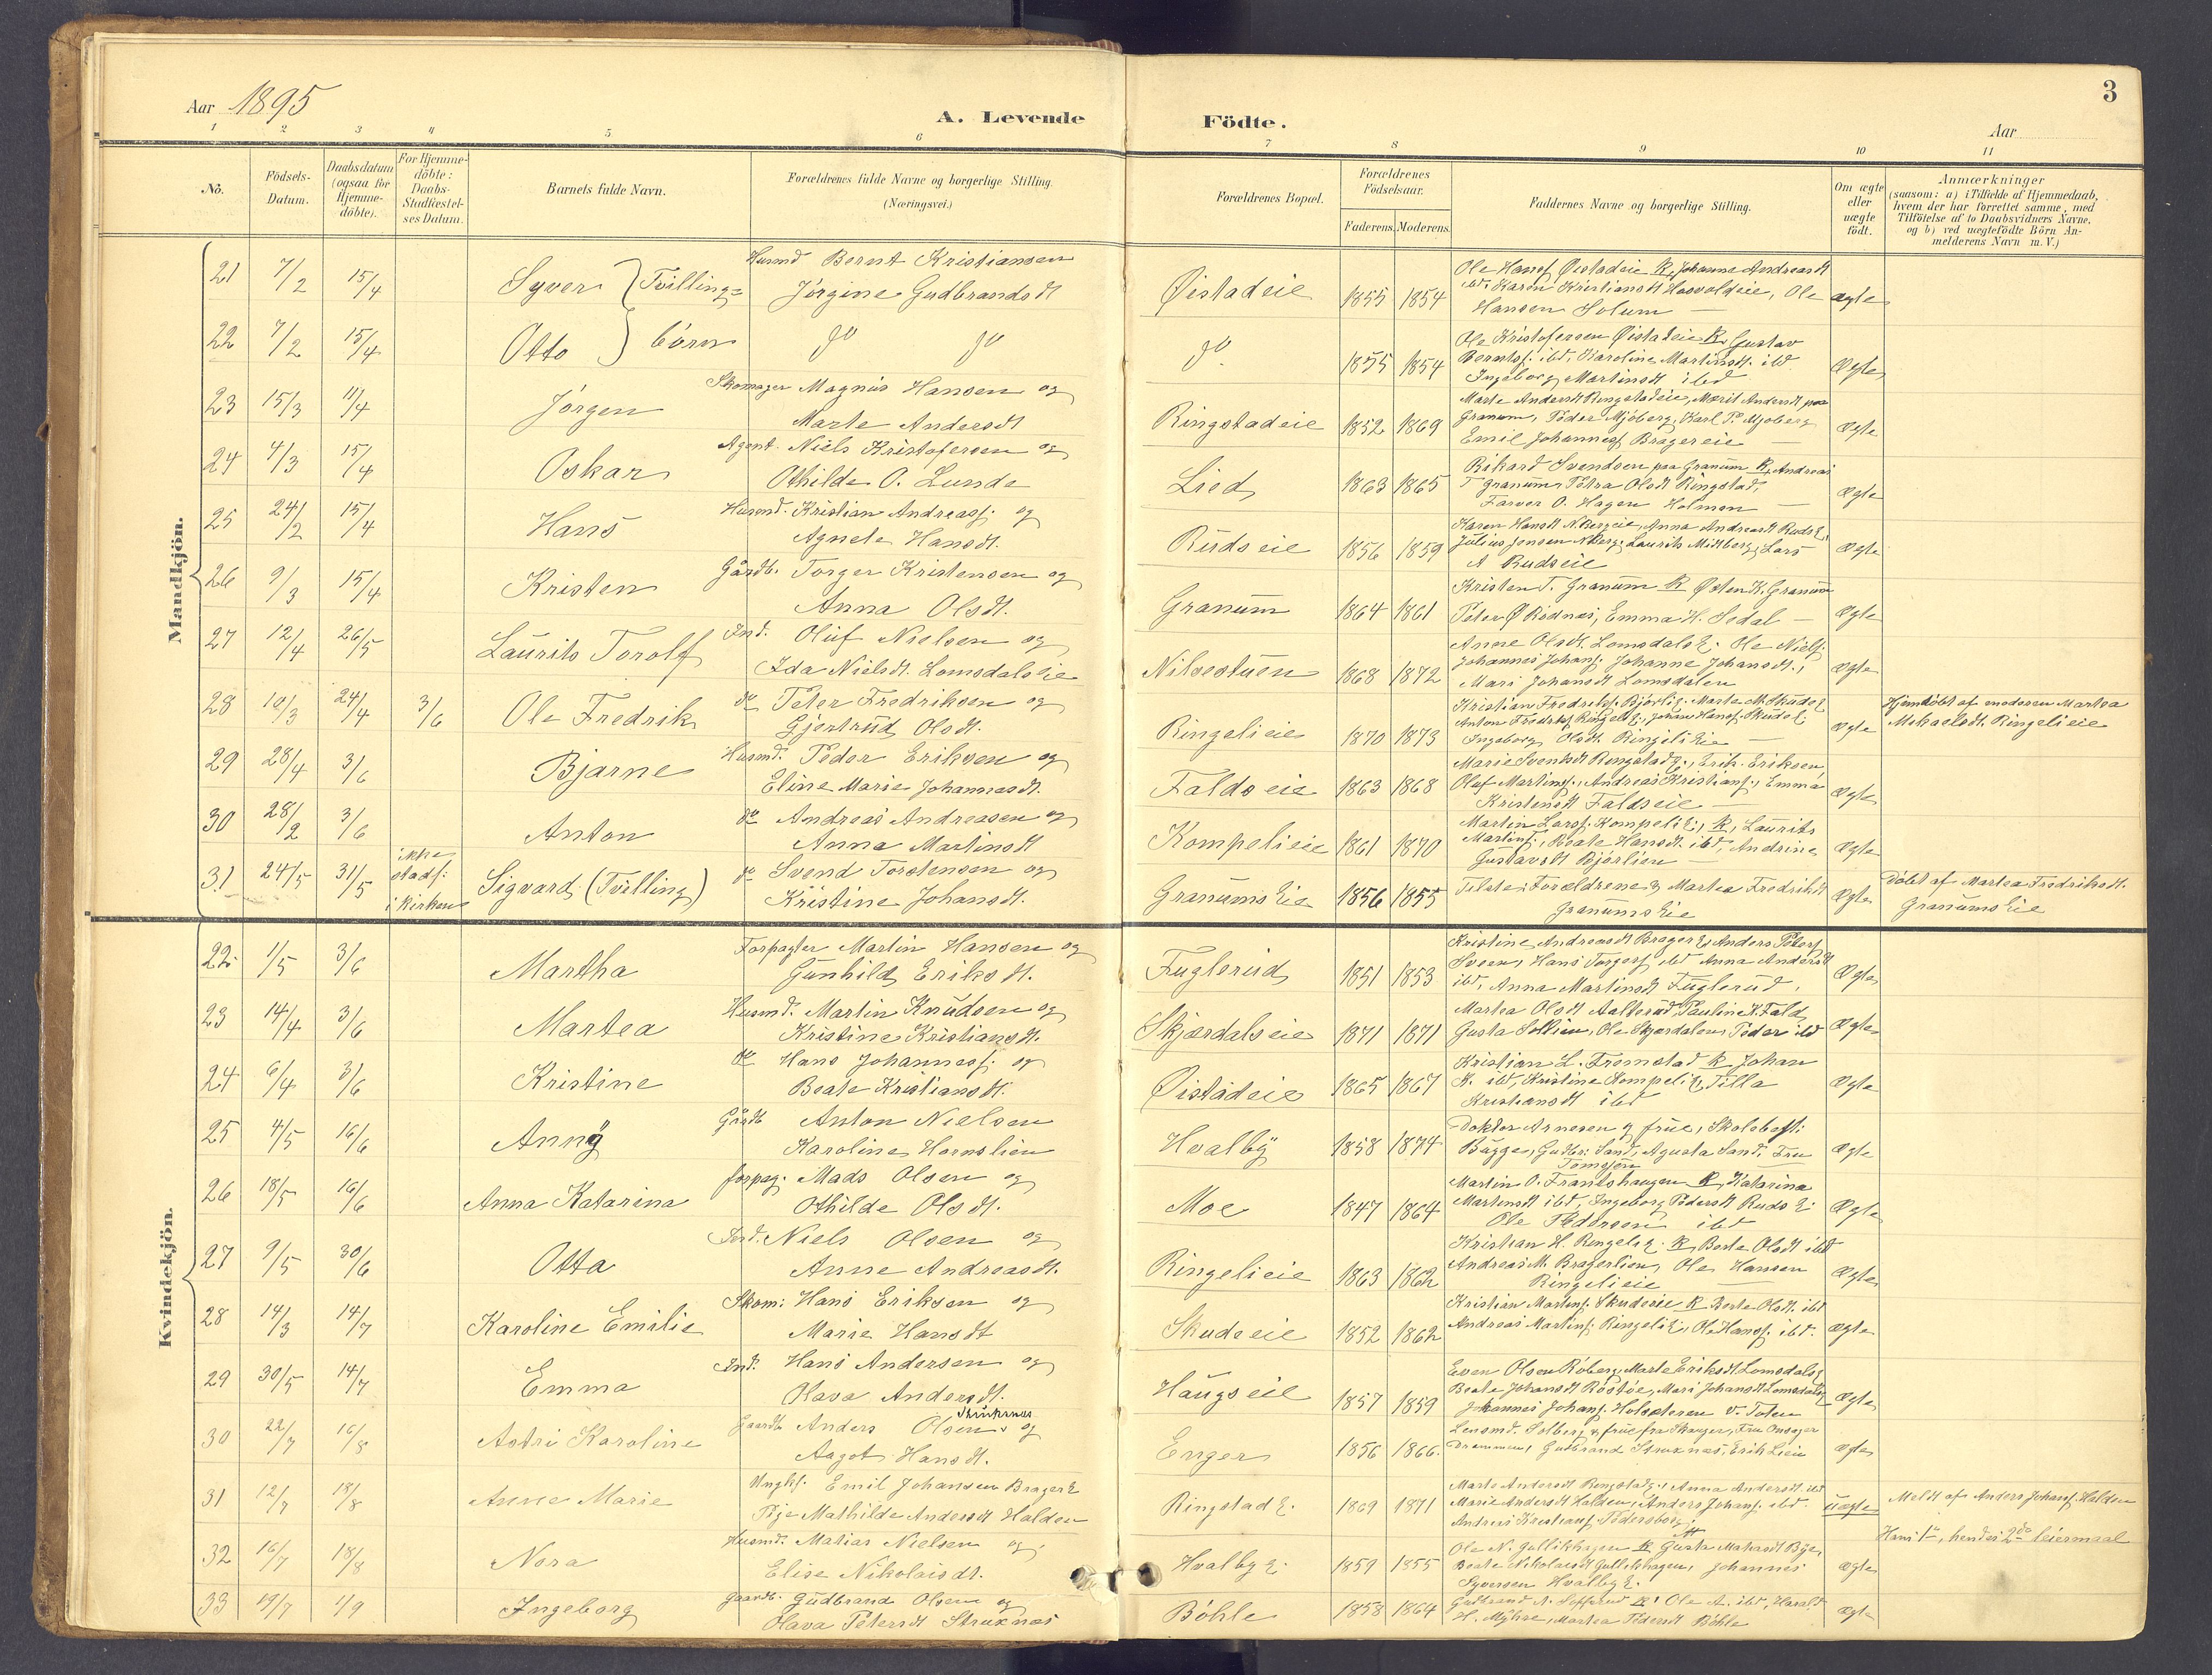 Aar 1895
A. Levende Födte.
Aar
3
1 2 3 4 5 6 7 8 9 10 11
No.
Födsels-
Datum.
Daabsdatum
(ogsaa for
Hjemme-
döbte).
For Hjemme-
döbte:
Daabs-
Stadfæstel-
ses Datum.
Barnets fulde Navn.
Forældrenes fulde Navne og borgerlige Stilling.
(Næringsvei.)
Forældrenes Bopæl.
Forældrenes
Födselsaar.
Faderens. Moderens.
Faddernes Navne og borgerlige Stilling.
Om ægte
eller
uægte
födt.
Anmærkninger
(saasom: a) i Tilfælde af Hjemmedaab,
hvem der har forrettet samme, med
Tilföielse af to Daabsvidners Navne,
og b) ved uægtefödte Börn An-
melderens Navn m.V.)
Mandkjön.
21 7/2 15/4 Syver } Tvilling= Husmd Bernt Kristiansen
Jörgine Gudbrandsdt Øistadeie 1855 1854 ægte
Ole Hansf Øistadeie K, Johanne Andreasdt
ibd, Karen Kristiansdt Hosvoldeie, Ole
Hansen Solum
22 7/2 15/4 Otto } börn do do do 1855 1854 Ægte
Ole Kristofersen Øistadeie K, Gustav
Berntsf. ibd, Karoline Martinsdt. ibd
Ingeborg Martinsdt ibd
23 15/3 15/4 Jörgen Skomager Magnus Hansen og
Marte Andersdt Ringstadeie 1852 1869 Ægte
Marte Andersdt Ringstadeie, Marit Andersdt paa
Granum, Peder Mjöberg, Karl P. Mjöberg
Emil Johannesf Bragereie
24 4/3 15/4 Oskar Agent. Niels Kristofersen og
Othilde O. Lunde Lied 1863 1865 Ægte
Rikard Svendsen paa Granum K, Andreas
T Granum, Petra Olsdt Ringstad,
Farver O. Hagen Holmen
25 24/2 15/4 Hans Husmd. Kristian Andreasf. og
Agnete Hansdt. Rudseie 1856 1859 Ægte
Julius Jensen NBerg, Laurits Midtberg, Lars
A Rudseie
26 9/3 15/4 Kristen Gårdb. Torger Kristensen og
Anna Olsdt. Granum 1864 1861 Ægte
Kristen T. Granum K Østen K. Granum
Peter Ø Rödnæs, Emma H. Sedal
27 12/4 26/5 Laurits Torolf Ind. Oluf Nielsen og
Ida Nielsdt. Lomsdalseie Nilsestuen 1868 1872 Ægte
Anne Olsdt. LomsdalsE. Ole Nielsf.
Johannes Johansf. Johanne Johansdt.,
Mari Johansdt Lomsdalen
28 10/3 24/4 3/6 Ole Fredrik do Peter Fredriksen og
Gjertrud Olsdt. Ringelieie 1870 1873 Ægte
Ingeborg Olsdt. RingeliEie
Hjemdöbt af moderen Martea
Mikaelsdt. Ringelieie
29 28/4 3/6 Bjarne Husmd. Peder Eriksen og
Eline Marie Johannesdt. Faldseie 1863 1868 Ægte
Marie Svensdt RingstadE., Erik Eriksen,
Oluf Martinsf., Andreas Kristiansf., Emma
Kristensdt Faldseie
30 28/2 3/6 Anton do Andreas Andreasen og
Anna Martinsdt Kompelieie 1861 1870 Ægte
Martin Larsf. KompeliE., K, Laurits
Martinsf., Beate Hansdt. ibd, Andrine
Gustavsdt Björlien
31 24/5 31/5 ikke
stadf:
i kirken Sigvard (Tvilling) do Svend Torstensen og
Kristine Johansdt. GranumsEie 1856 1855 Ægte
Forældrene & Martea Fredriksdt
GranumsEie
Döbt af Martea Fredriksdt.
GranumsEie
Kvindekjön.
22. 1/5 3/6 Martha Forpagter Martin Hansen og
Gunhild Eriksdt. Fuglerud 1851 1853 Ægte
Kristine Andreasdt BragerE, Anders Petersf
Sveen, Hans Torgersf ibd Anna Andersdt
ibd, Anna Martinsdt Fuglerud.
23 14/4 3/6 Martea Husmd. Martin Knudsen og
Kristine Kristiansdt. Skjærdalseie 1871 1871 Ægte
Martea Olsdt Aalterud, Pauline K. Fald,
Gusta Sollien, Ole Skjærdalen, Peder ibd
24 6/4 3/6 Kristine do Hans Johannesf. og
Beate Kristiansdt. Øistadeie 1865 1867 Ægte
Kristian L. Fremstad K, Johan
K. ibd, Kristine KompeliE, Tilla
Kristiansdt ibd
25 4/5 16/6 Anny Gårdb Anton Nielsen
Karoline Hornslien Hvalby 1858 1874 Ægte
Doktor Arnesen & frue, Skolebest:
Bugge, Gudbr. Sand, Agusta Sand, Fru
26 18/5 16/6 Anna Katarina forpag. Mads Olsen og
Othilde Olsdt. Moe 1847 1864 Ægte
Martin O. Frantshaugen K, Katarina
Martinsdt ibd, Ingeborg Pedersdt RudsE.
Ole Pedersen ibd
27 9/5 30/6 Otta Ind. Niels Olsen og
Anne Andreasdt. Ringelieie 1863 1862 Ægte
Kristian H. RingeliE. K, Berte Olsdt ibd
Andreas M. Bragerlien, Ole Hansen
Ringelieie
28 14/3 14/7 Karoline Emilie Skom: Hans Eriksen og
Marie Hansdt Skudeeie 1852 1862 ægte
Kristian Martinsf. Skudeeie K Berte Olsdt. ibd
Andreas Martinsf. RingeliE, Ole Hansf. ibd.
29 30/5 14/7 Emma Ind. Hans Andersen og
Olava Andersdt. Haugseie 1857 1859 Ægte
Even Olsen Röberg, Marte Eriksdt LomsdalsE
Beate Johansdt Röstöe, Mari Johansdt LomsdalsE
Johannes Johansf. Holsæteren V. Toten
30 22/7 16/8 Astri Karoline Gaardb. Anders Olsen Struknæs og
Aagot Hansdt. Enger 1856 1866. ægte
Lensmd. Solberg & frue fra Skauger, Fru Onsager
Drammen, Gudbrand Struknæs, Erik Lien
31 12/7 18/8 Anne Marie Ungkf. Emil Johansen BragerE
Pige Mathilde Andersdt Halden RingstadE. 1869 1871 uægte
Marte Andersdt RingstadE., Anna Andersdt. ibd
Marie Andersdt Halden, Anders Johansf. ibd.
Andreas Kristiansf. Pedersborg.
Meldt af Anders Johansf. Halden
Hans 1ste, hendes 2det leiermaal
32 16/7 18/8 Nora Husmd. Matias Nielsen og
Elise Nikolaisdt. HvalbyE. 1859 1855 ægte
Ole N. Gullikhagen K, Gusta Matiasdt Bye,
Beate Nikolaisdt Gullikhagen, Johannes
Syversen HvalbyE.
33 19/7 1/9 Ingeborg Gaardb. Gudbrand Olsen og
Olava Petersdt Struknæs Böhle 1858 1864 ægte
H. Myhre, Martea Pedersdt Böhle